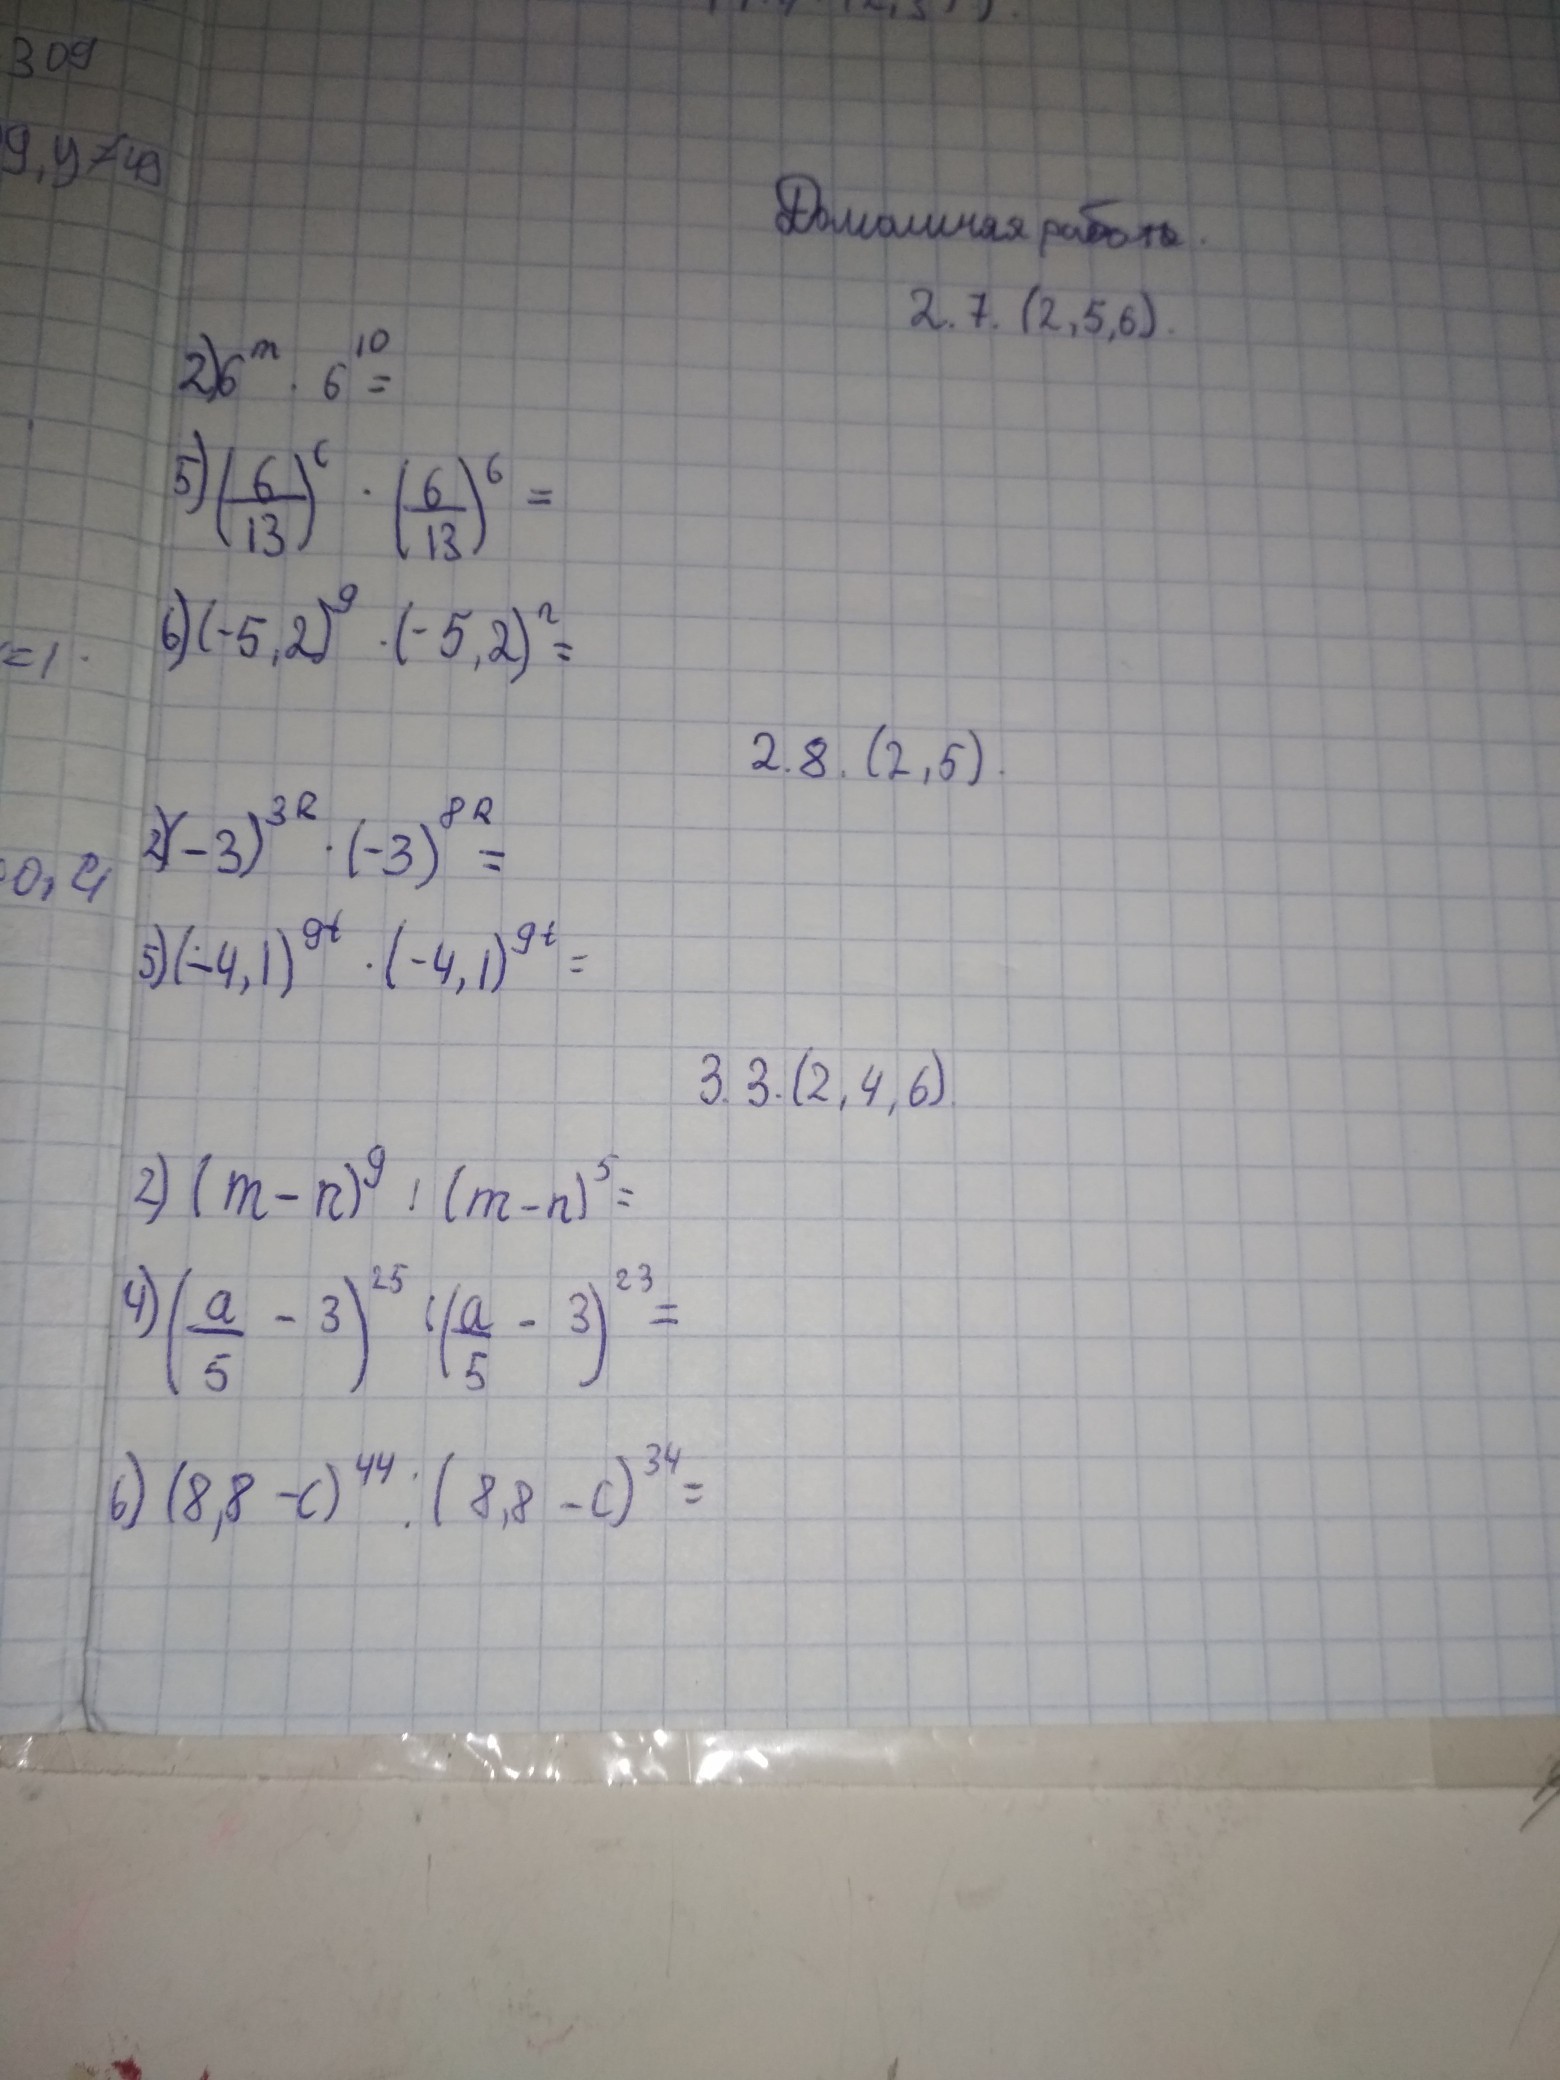 309
9, y ≠ 49
Домашняя работа.
2.7. (2,5,6).
2) 6^m · 6^10 =
5) (6/13)^6 · (6/13)^6 =
6) (-5,2)^9 · (-5,2)^n =
=1.
2.8. (2,5).
2) (-3)^3k · (-3)^8k =
0,4
5) (-4,1)^9t · (-4,1)^9t =
3.3. (2,4,6).
2) (m-n)^9 : (m-n)^5 =
4) (a/5 - 3)^25 : (a/5 - 3)^23 =
6) (8,8-c)^44 : (8,8-c)^34 =